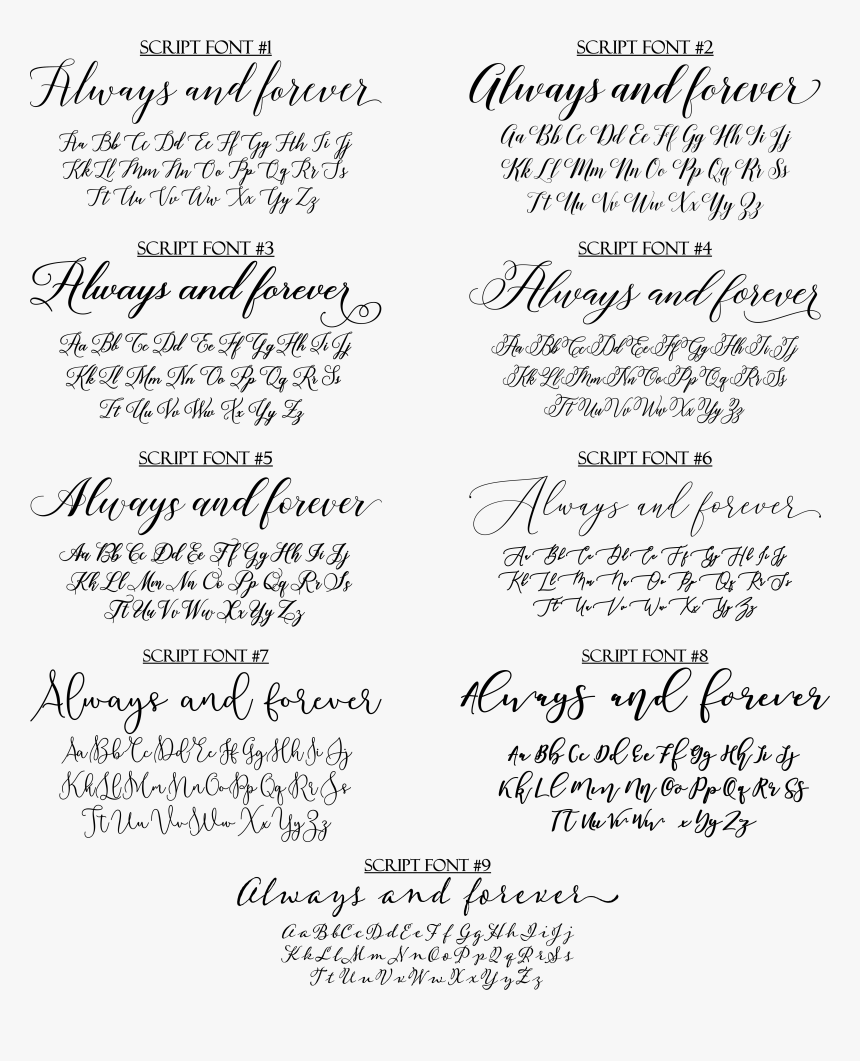 SCRIPT FONT #1
Always and forever
Aa Bb Cc Dd Ee Ff Gg Hh Ii Jj
Kk Ll Mm Nn Oo Pp Qq Rr Ss
Tt Uu Vv Ww Xx Yy Zz
SCRIPT FONT #2
Always and forever
Aa Bb Cc Dd Ee Ff Gg Hh Ii Jj
Kk Ll Mm Nn Oo Pp Qq Rr Ss
Tt Uu Vv Ww Xx Yy Zz
SCRIPT FONT #3
Always and forever
Aa Bb Cc Dd Ee Ff Gg Hh Ii Jj
Kk Ll Mm Nn Oo Pp Qq Rr Ss
Tt Uu Vv Ww Xx Yy Zz
SCRIPT FONT #4
Always and forever
Aa Bb Cc Dd Ee Ff Gg Hh Ii Jj
Kk Ll Mm Nn Oo Pp Qq Rr Ss
Tt Uu Vv Ww Xx Yy Zz
SCRIPT FONT #5
Always and forever
Aa Bb Cc Dd Ee Ff Gg Hh Ii Jj
Kk Ll Mm Nn Oo Pp Qq Rr Ss
Tt Uu Vv Ww Xx Yy Zz
SCRIPT FONT #6
Always and forever
Aa Bb Cc Dd Ee Ff Gg Hh Ii Jj
Kk Ll Mm Nn Oo Pp Qq Rr Ss
Tt Uu Vv Ww Xx Yy Zz
SCRIPT FONT #7
Always and forever
Aa Bb Cc Dd Ee Ff Gg Hh Ii Jj
Kk Ll Mm Nn Oo Pp Qq Rr Ss
Tt Uu Vv Ww Xx Yy Zz
SCRIPT FONT #8
Always and forever
Aa Bb Cc Dd Ee Ff Gg Hh Ii Jj
Kk Ll Mm Nn Oo Pp Qq Rr Ss
Tt Uu Vv Ww x Yy Zz
SCRIPT FONT #9
Always and forever
Aa Bb Cc Dd Ee Ff Gg Hh Ii Jj
Kk Ll Mm Nn Oo Pp Qq Rr Ss
Tt Uu Vv Ww Xx Yy Zz